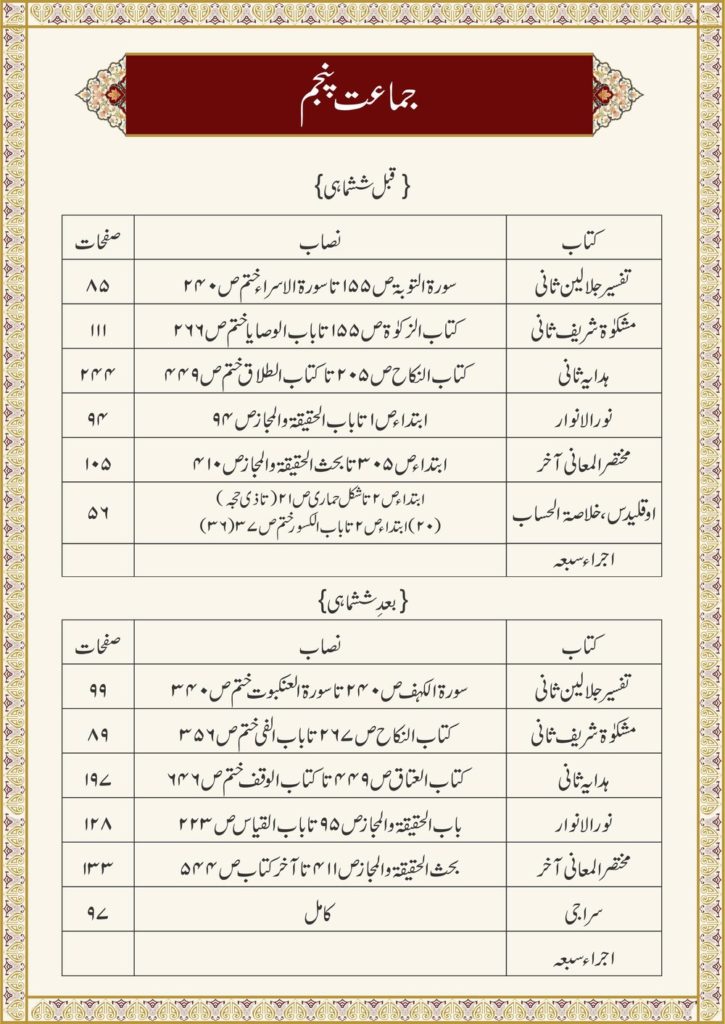 جماعت پنجم
{قبل ششماہی}
کتاب نصاب صفحات
تفسیر جلالین ثانی سورۃ التوبۃ ص ۱۵۵ تا سورۃ الاسراء ختم ص ۲۴۰ ۸۵
مشکوٰۃ شریف ثانی کتاب الزکوٰۃ ص ۱۵۵ تا باب الوصایا ختم ص ۲۶۶ ۱۱۱
ہدایہ ثانی کتاب النکاح ص ۲۰۵ تا کتاب الطلاق ختم ص ۴۴۹ ۲۴۴
نور الانوار ابتداء ص ۱ تا باب الحقیقۃ والمجاز ص ۹۴ ۹۴
مختصر المعانی آخر ابتداء ص ۳۰۵ تا بحث الحقیقۃ والمجاز ص ۴۱۰ ۱۰۵
اوقلیدس، خلاصۃ الحساب ابتداء ص ۲ تا شکل حماری ص ۲۱ (تا ذی حجہ) ۵۶
(۲۰) ابتداء ص ۲ تا باب الکسور ختم ص ۳۷ (۳۶)
اجراء سبعہ
{بعدِ ششماہی}
کتاب نصاب صفحات
تفسیر جلالین ثانی سورۃ الکہف ص ۲۴۰ تا سورۃ العنکبوت ختم ص ۳۴۰ ۹۹
مشکوٰۃ شریف ثانی کتاب النکاح ص ۲۶۷ تا باب الفئ ختم ص ۳۵۶ ۸۹
ہدایہ ثانی کتاب العتاق ص ۴۴۹ تا کتاب الوقف ختم ص ۶۴۶ ۱۹۷
نور الانوار باب الحقیقۃ والمجاز ص ۹۵ تا باب القیاس ص ۲۲۳ ۱۲۸
مختصر المعانی آخر بحث الحقیقۃ والمجاز ص ۴۱۱ تا آخر کتاب ص ۵۴۴ ۱۳۳
سراجی کامل ۹۷
اجراء سبعہ